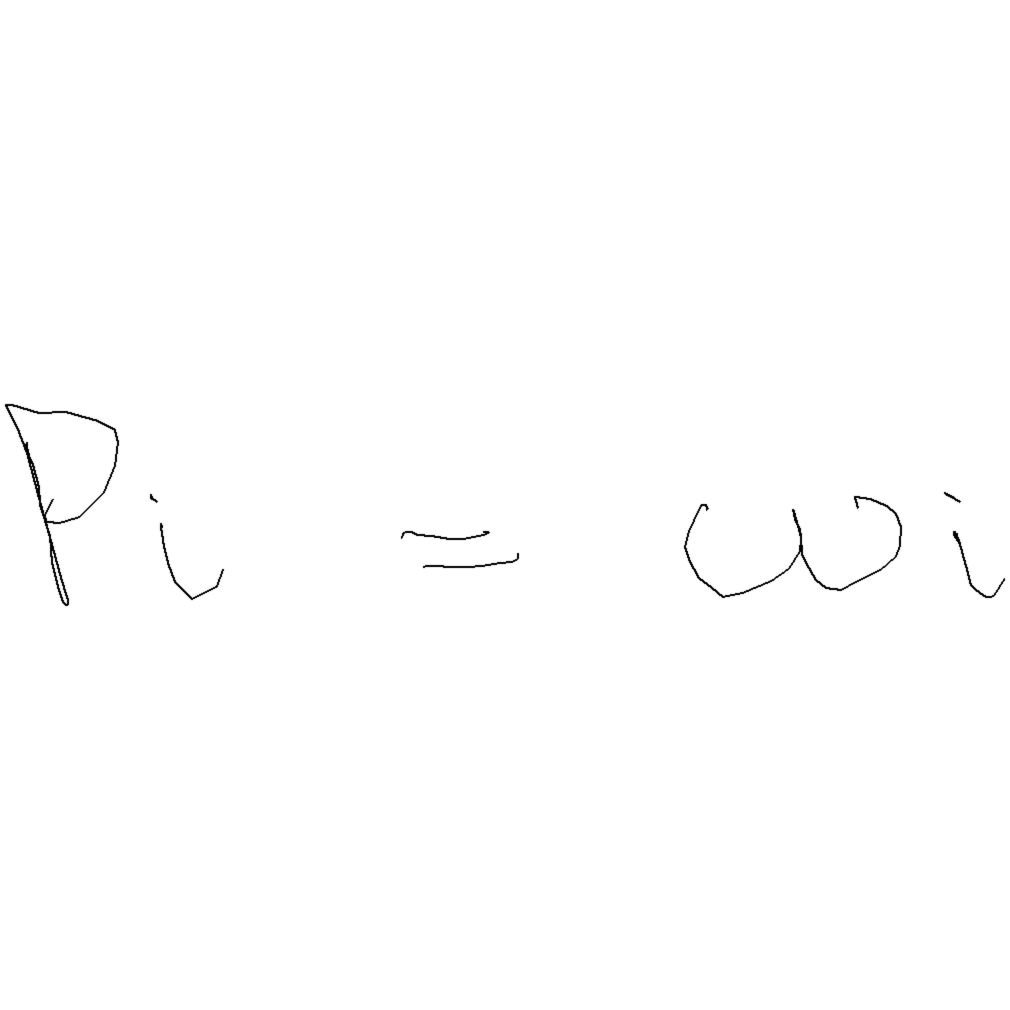 Pi = ωi